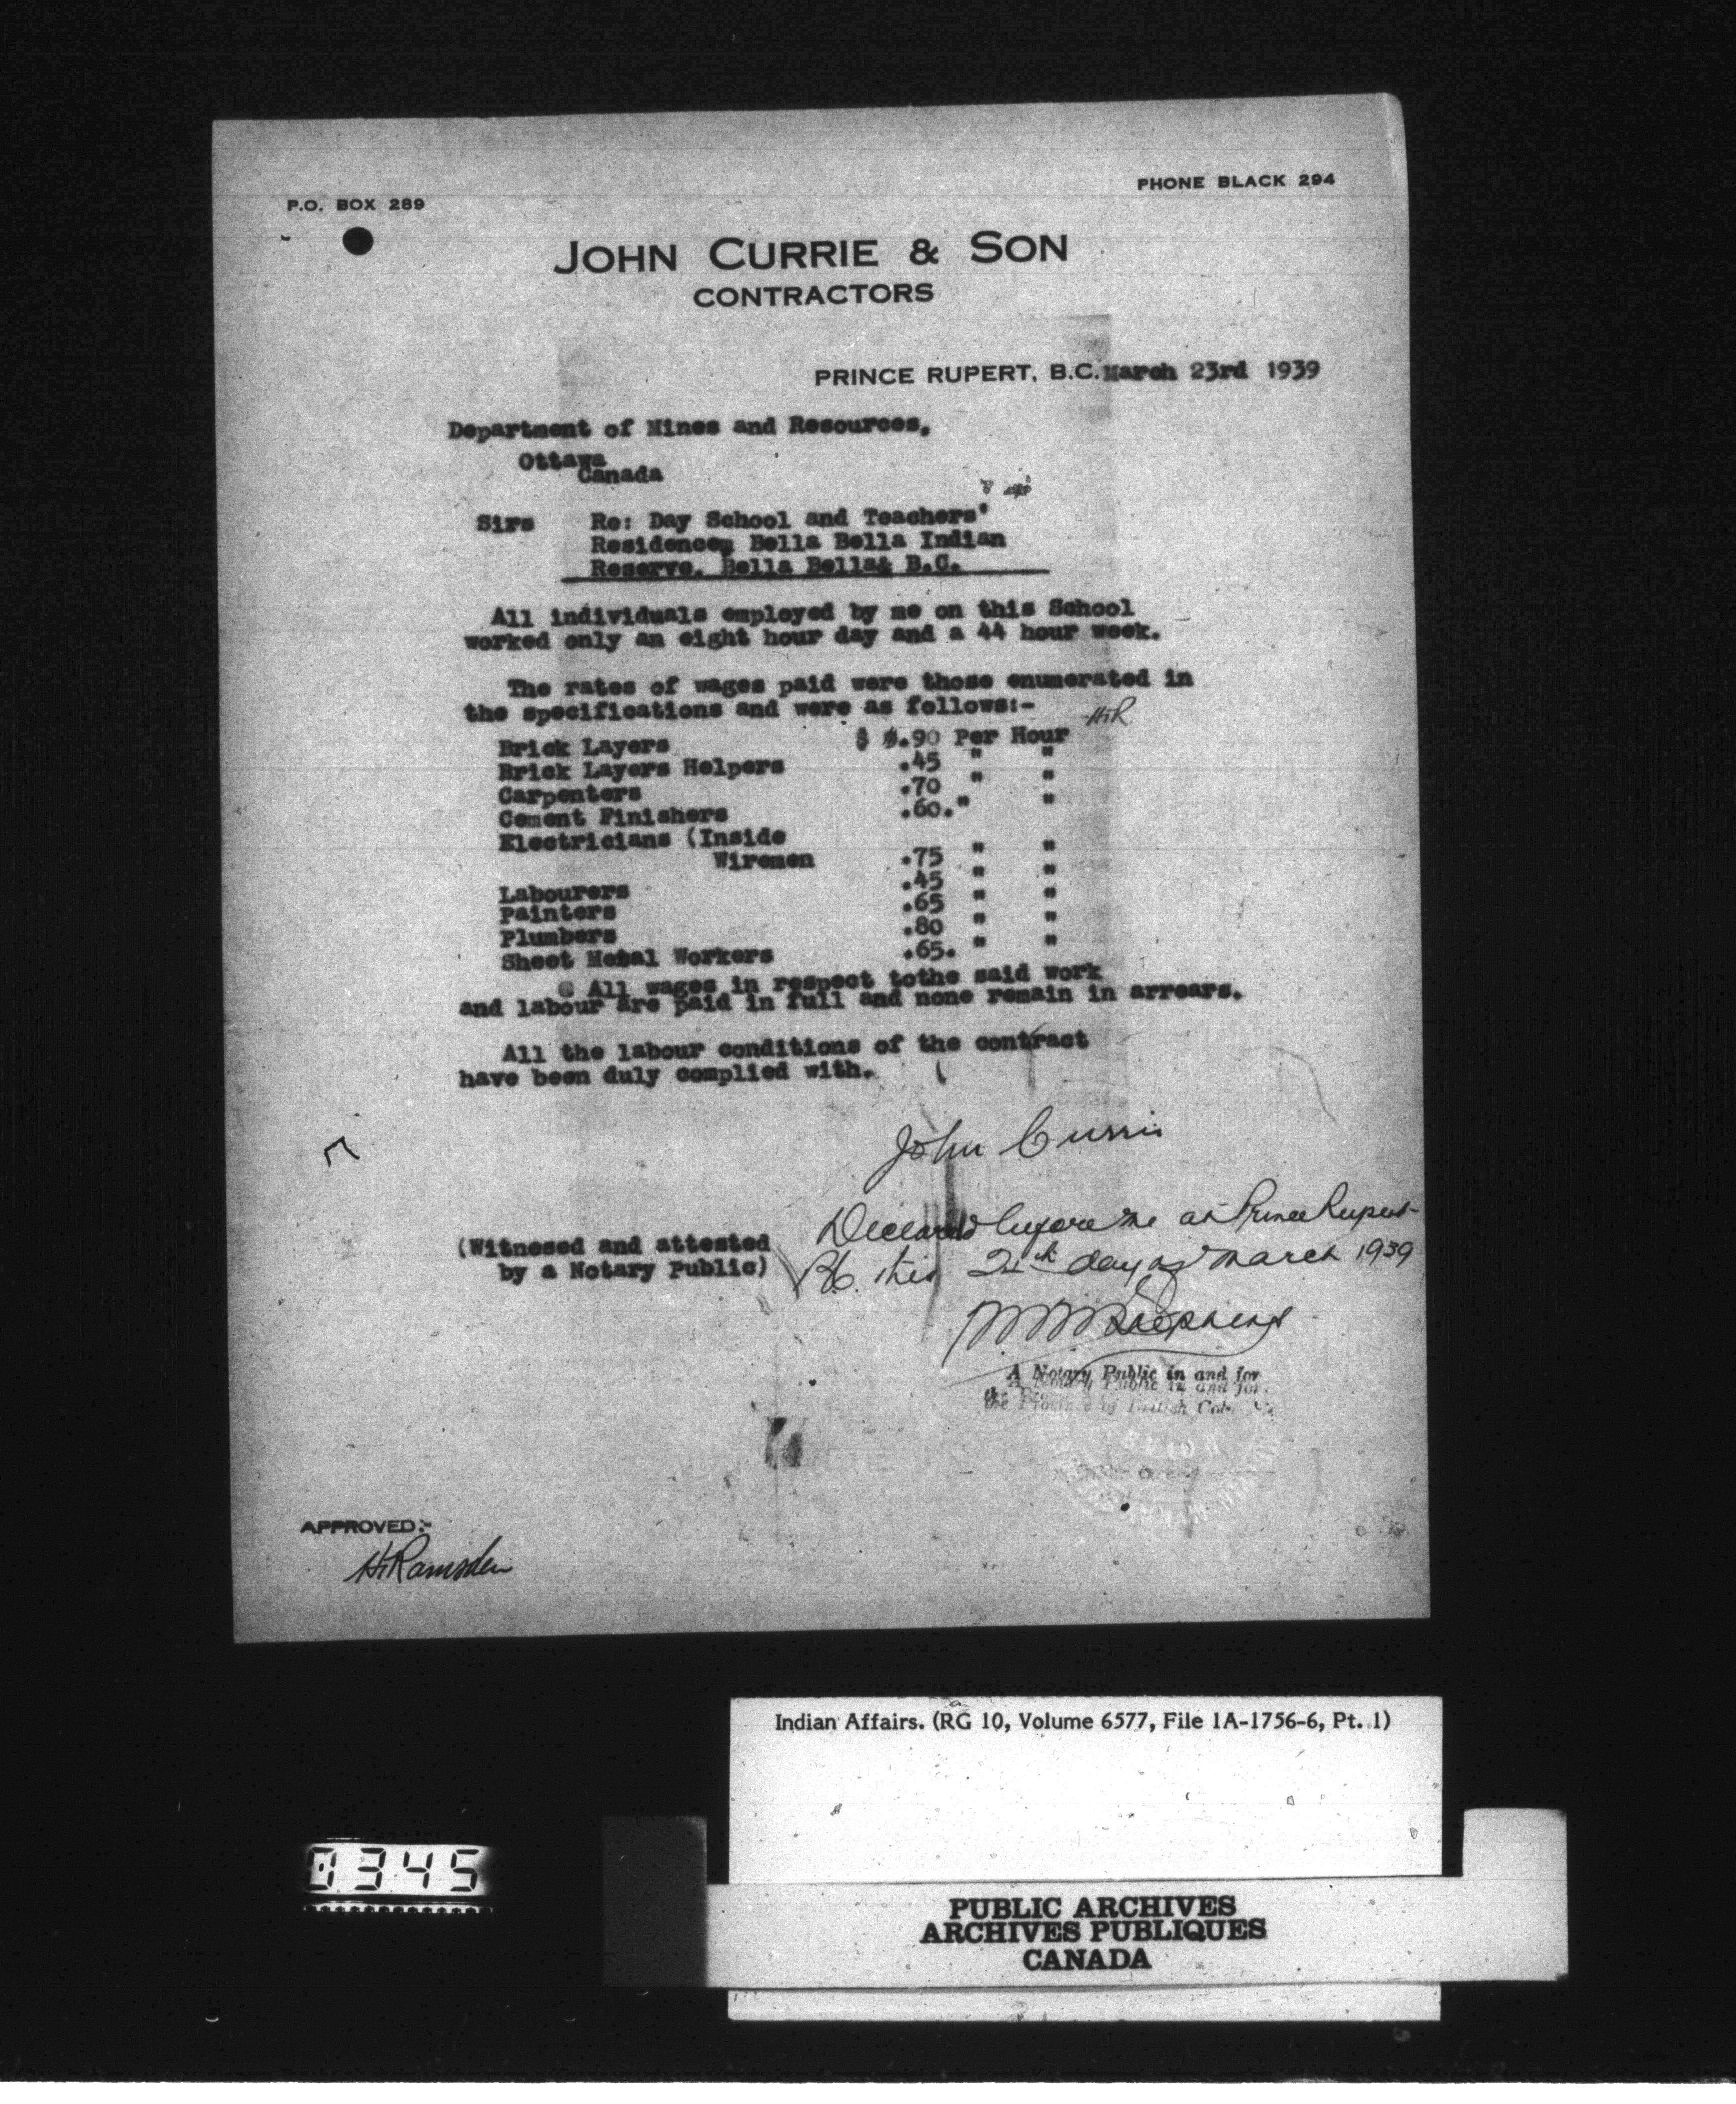 P.O. BOX 289
PHONE BLACK 294
JOHN CURRIE & SON
CONTRACTORS
PRINCE RUPERT, B.C. March 23rd 1939
Department of Mines and Resources,
Ottawa
Canada
Sirs Re: Day School and Teachers'
Residence, Bella Bella Indian
Reserve. Bella Bella, B.C.
All individuals employed by me on this School
worked only an eight hour day and a 44 hour week.
The rates of wages paid were those enumerated in
the specifications and were as follows:-
HR
Brick Layers $ .90 Per Hour
Brick Layers Helpers .45 " "
Carpenters .70 " "
Cement Finishers .60. " "
Electricians (Inside
Wiremen .75 " "
Labourers .45 " "
Painters .65 " "
Plumbers .80 " "
Sheet Metal Workers .65. " "
All wages in respect tothe said work
and labour are paid in full and none remain in arrears.
All the labour conditions of the contract
have been duly complied with.
John Currie
Declared before me at Prince Rupert
(Witnesed and attested
by a Notary Public)
BC. this day of March 1939
A Notary Public in and for
the Province of British
APPROVED:-
H Ramsden
Indian Affairs. (RG 10, Volume 6577, File 1A-1756-6, Pt. 1)
0345
PUBLIC ARCHIVES
ARCHIVES PUBLIQUES
CANADA